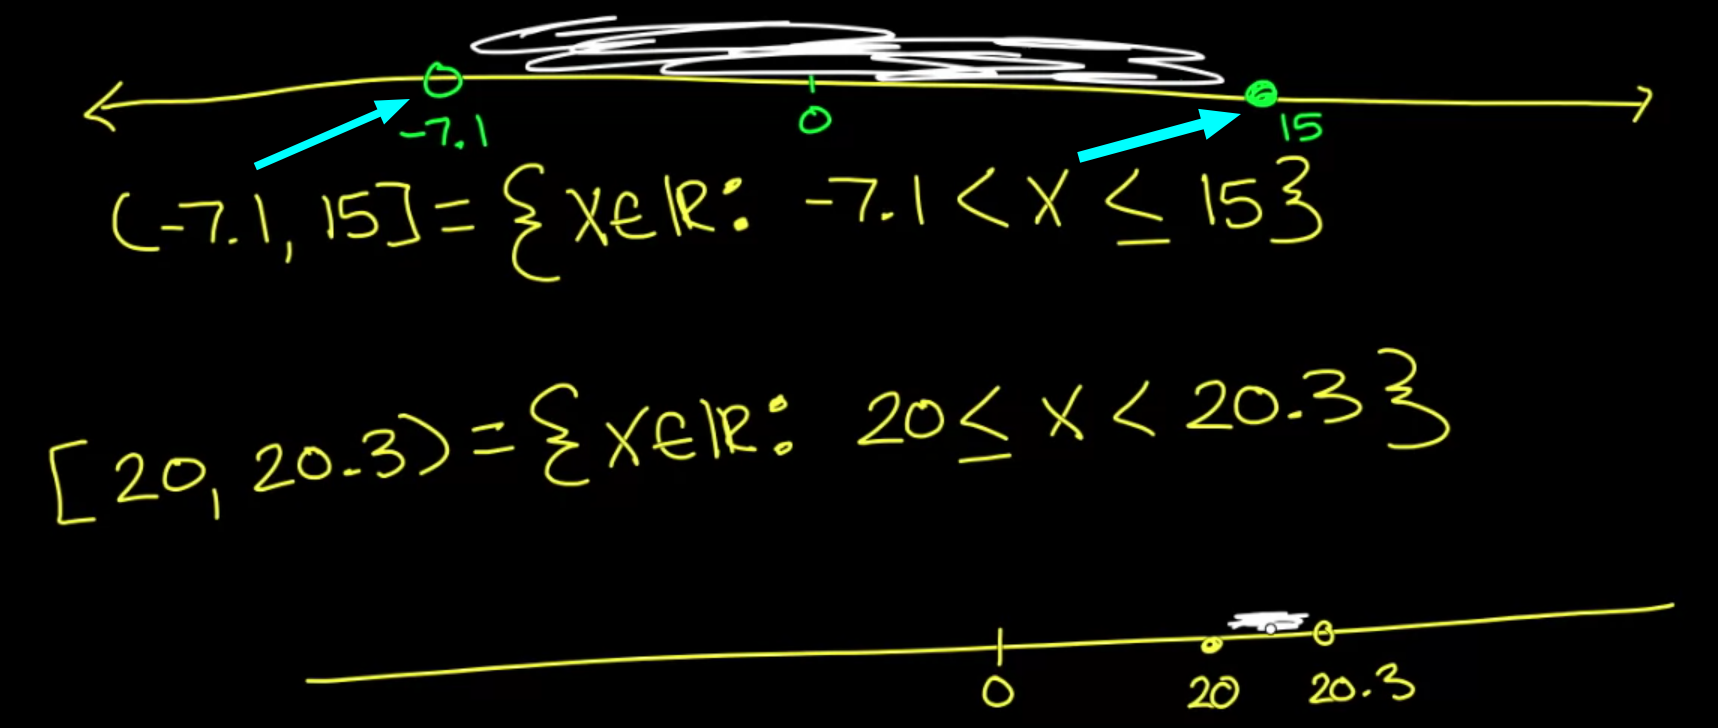 -7.1 0 15
(-7.1, 15] = {x∈ℝ: -7.1 < x ≤ 15}
[20, 20.3) = {x∈ℝ: 20 ≤ x < 20.3}
0 20 20.3